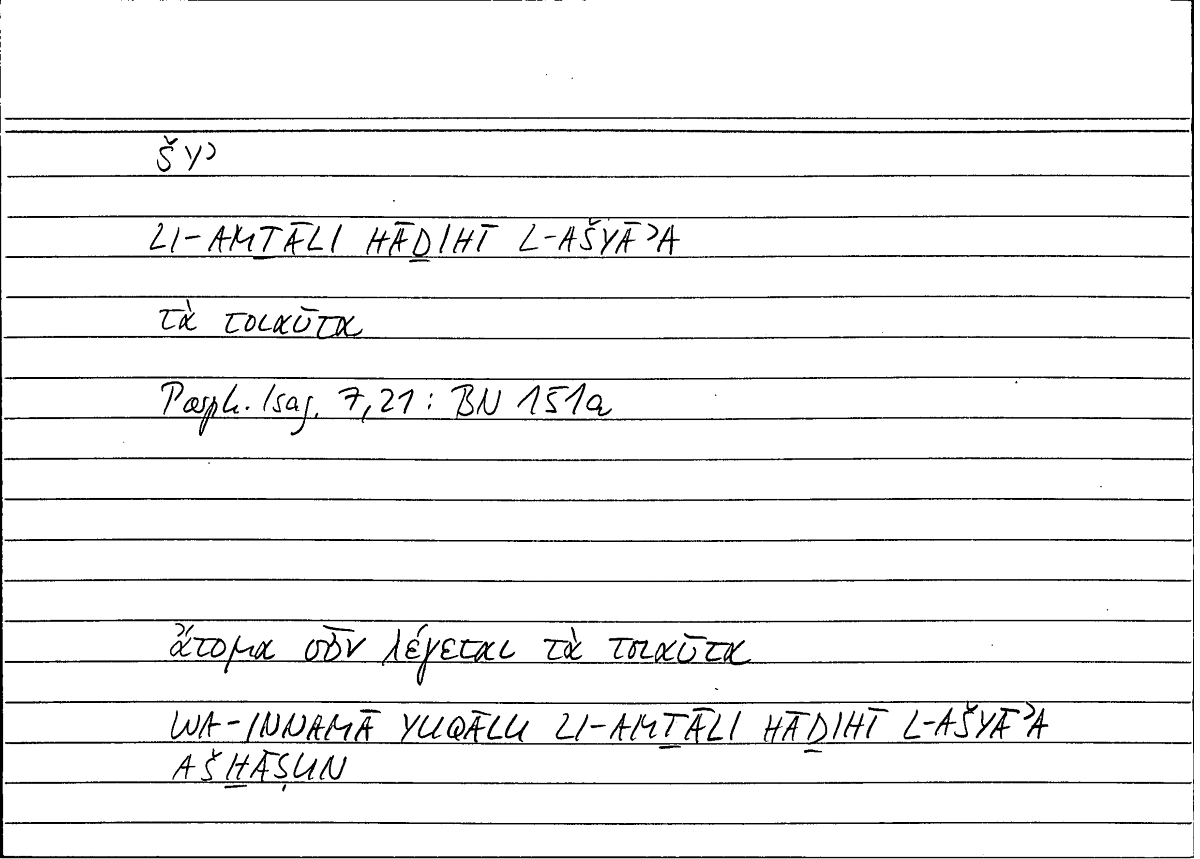 ŠYʾ
LI-AMṮĀLI HĀḎIHĪ L-AŠYĀʾA
τὰ τοιαῦτα
Porph. Isag. 7,21 : BN 151a
ἄτομα οὖν λέγεται τὰ τοιαῦτα
WA-INNAMĀ YUQĀLU LI-AMṮĀLI HĀḎIHĪ L-AŠYĀʾA
AŠH̱ĀṢUN